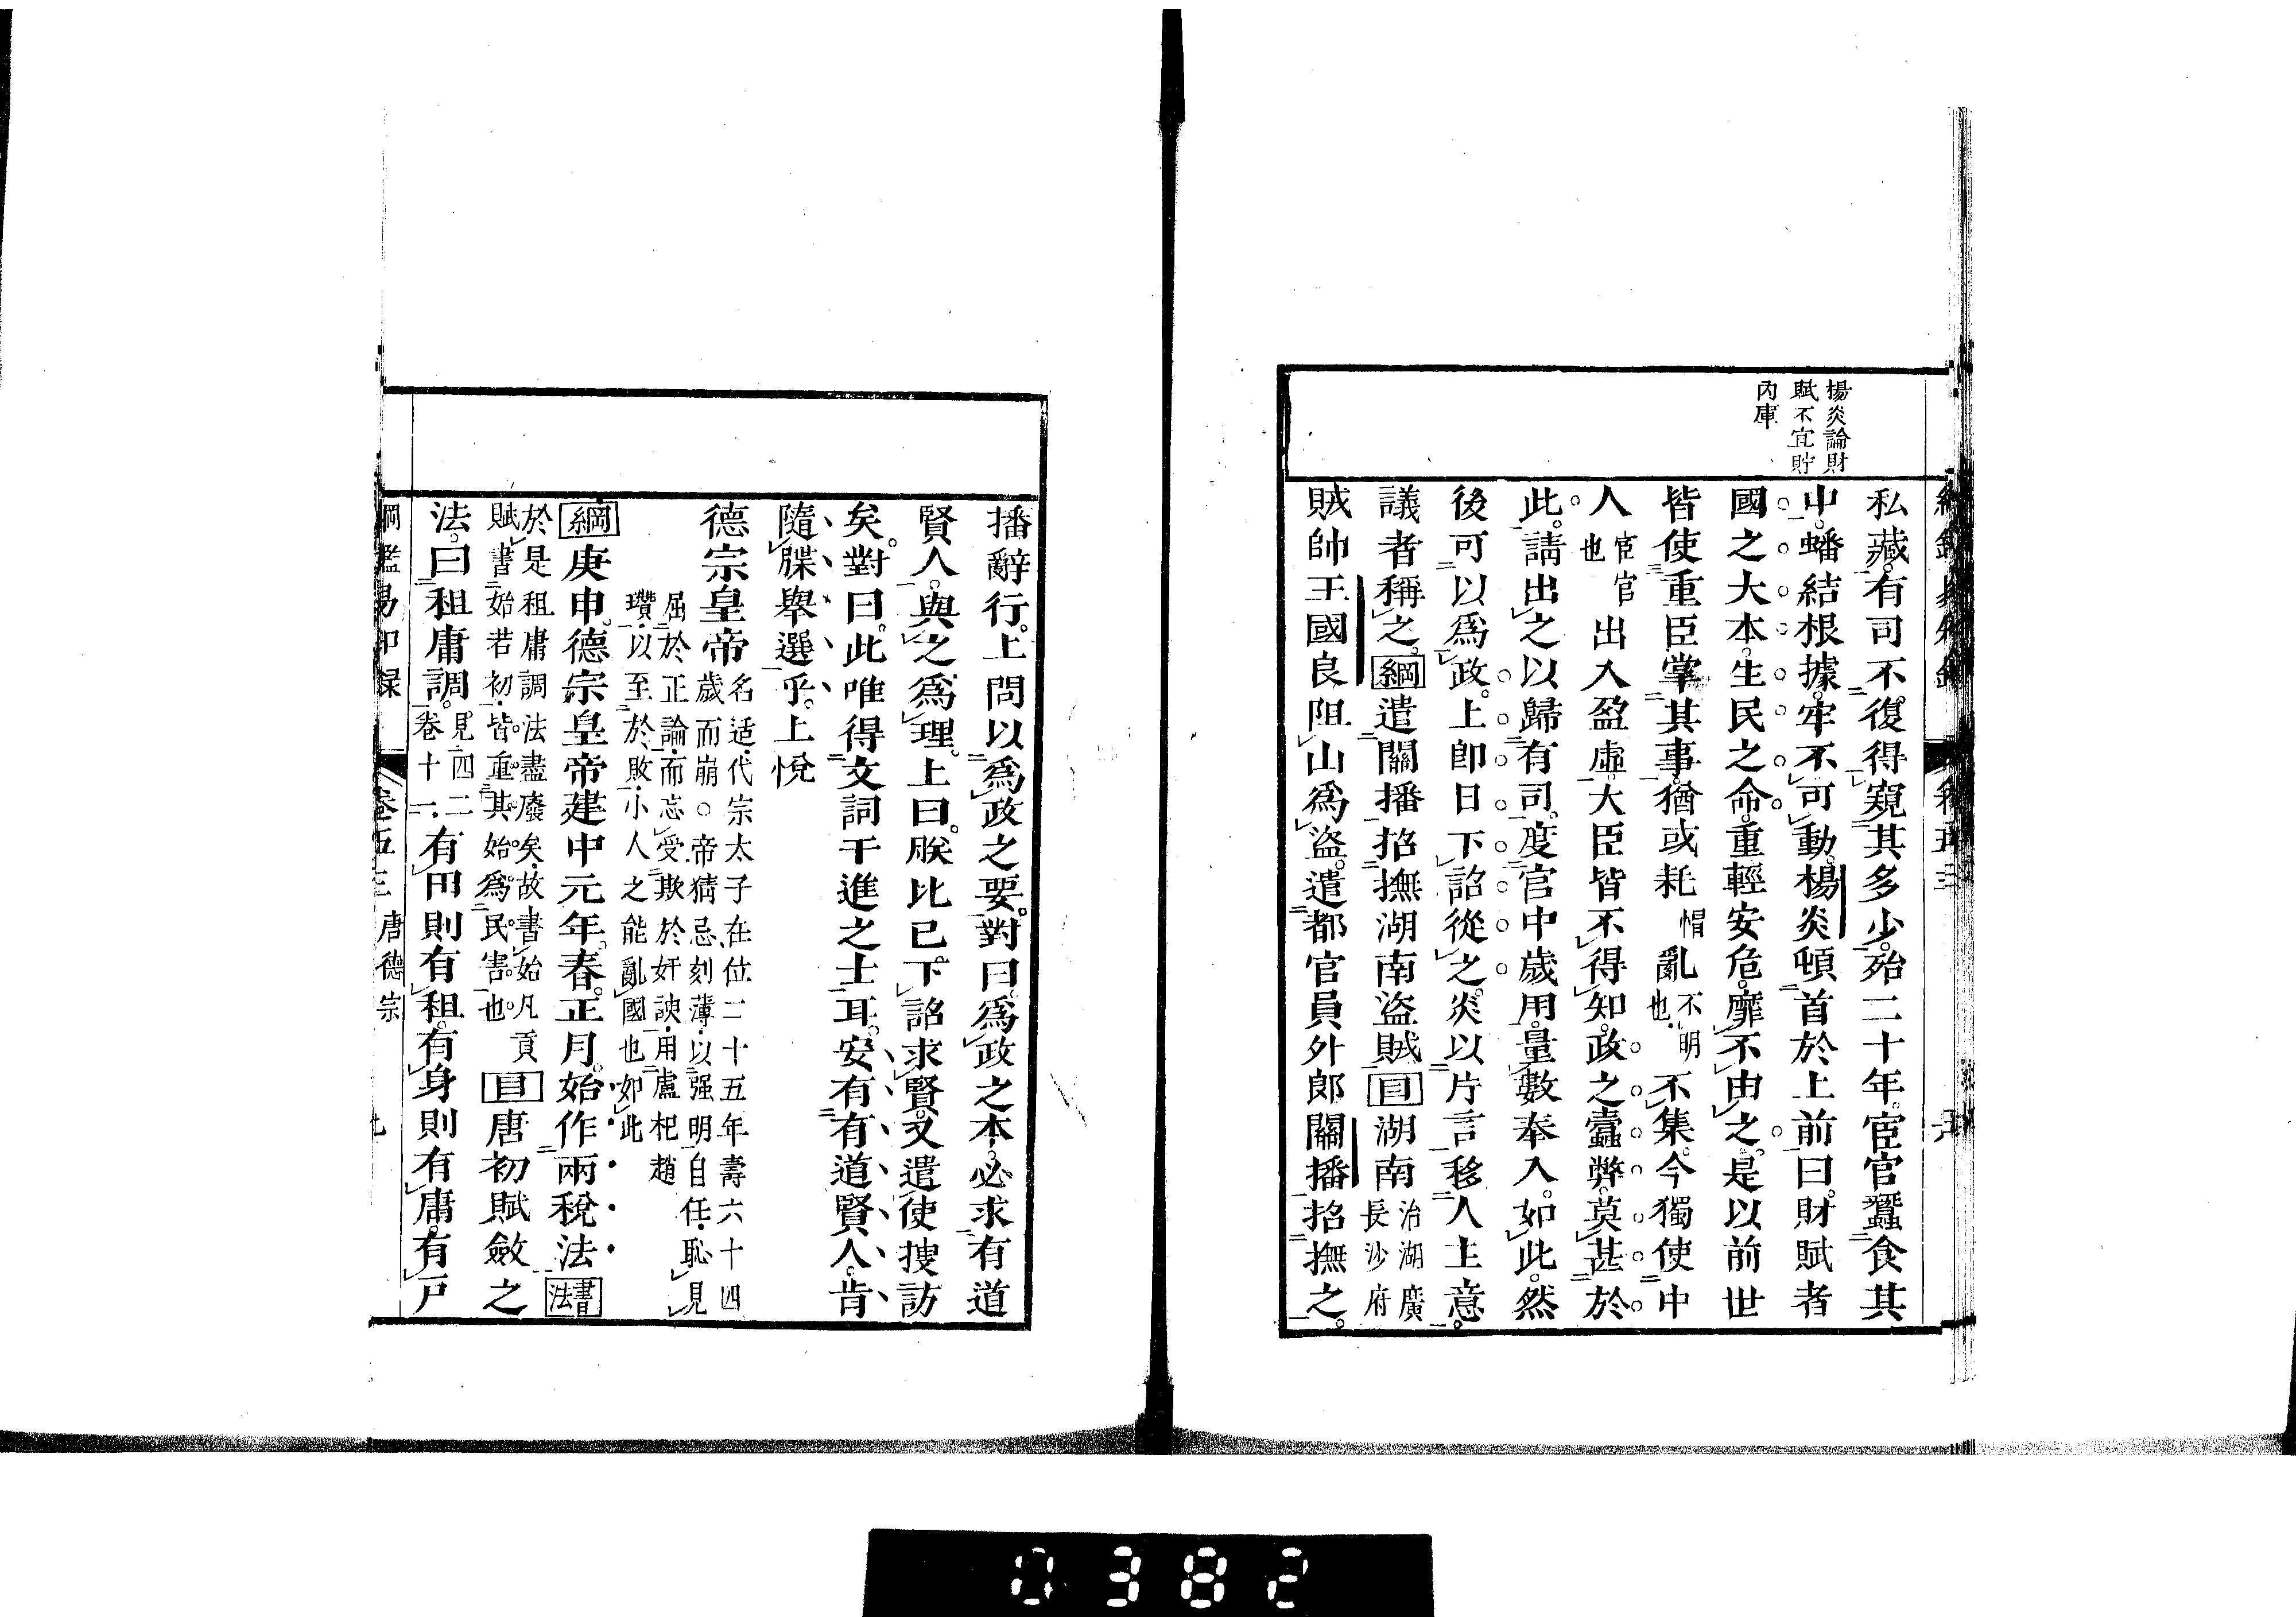 楊炎論財
賦不宜貯
內庫
私藏。有司不復得窺其多少。殆二十年。宦官蠶食其
中。蟠結根據。牢不可動。楊炎頓首於上前曰。財賦者
國之大本。生民之命。重輕安危。靡不由之。是以前世
皆使重臣掌其事。猶或耗惽亂不明也不集。今獨使中
人宦官也出入盈虛。大臣皆不得知。政之蠹弊。莫甚於
此。請出之以歸有司。度宮中歲用。量數奉入。如此。然
後可以爲政。上卽日下詔從之。炎以片言移人主意。
議者稱之。綱遣關播招撫湖南盜賊目湖南治湖廣長沙府
賊帥王國良阻山爲盜。遣都官員外郎關播招撫之。
播辭行。上問以爲政之要。對曰。爲政之本。必求有道
賢人。與之爲理。上曰。朕比已下詔求賢。又遣使搜訪
矣。對曰。此唯得文詞干進之士耳。安有有道賢人。肯
隨牒舉選乎。上悅
德宗皇帝名适代宗太子在位二十五年壽六十四
歲而崩○帝猜忌刻薄以强明自任恥見
屈於正論而忘受欺於奸諛用盧杞趙
瓚以至於敗小人之能亂國也如此
綱庚申。德宗皇帝建中元年。春。正月。始作兩稅法書法
於是租庸調法盡廢矣故書始凡貢
賦書始若初皆重其始爲民害也目唐初賦斂之
法。曰租庸調。見四二卷十一有田則有租。有身則有庸。有戶
卷五三 唐德宗